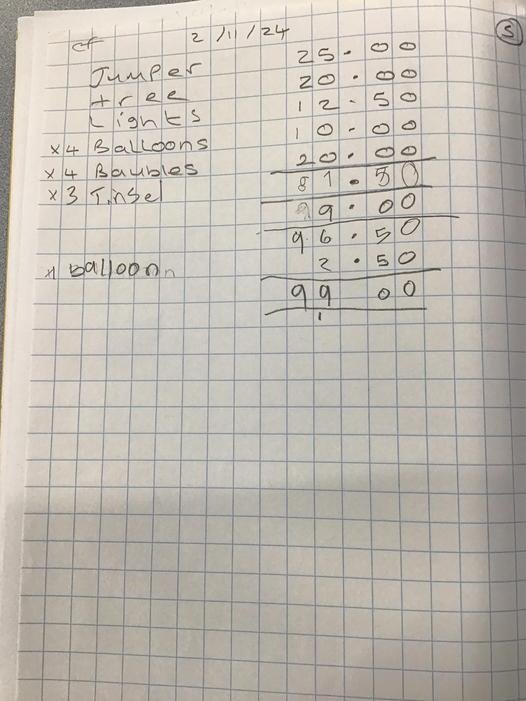 cf 2/11/24 5
Jumper 25.00
tree 20.00
Lights 12.50
x4 Balloons 10.00
x4 Baubles 20.00
x3 Tinsel 81.50
99.00
96.50
x1 Balloon 2.50
99 00
1